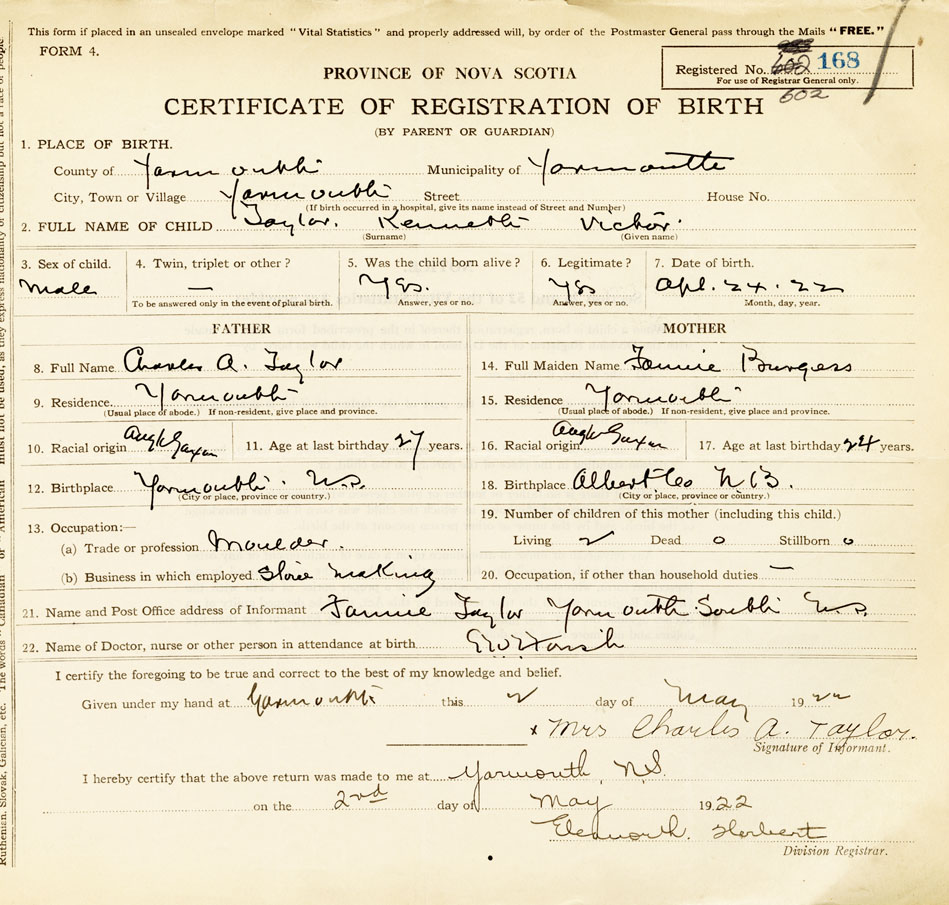 This form if placed in an unsealed envelope marked "Vital Statistics" and properly addressed will, by order of the Postmaster General pass through the Mails "FREE."
FORM 4.
Registered No. 168
For use of Registrar General only.
602
PROVINCE OF NOVA SCOTIA
CERTIFICATE OF REGISTRATION OF BIRTH
(BY PARENT OR GUARDIAN)
1. PLACE OF BIRTH.
County of Yarmouth Municipality of Yarmouth
City, Town or Village Yarmouth Street House No.
(If birth occurred in a hospital, give its name instead of Street and Number)
2. FULL NAME OF CHILD Taylor. Kenneth Victor.
(Surname) (Given name)
3. Sex of child. 4. Twin, triplet or other? 5. Was the child born alive? 6. Legitimate? 7. Date of birth.
Male — Yes. Yes Apl. 24. 22
To be answered only in the event of plural birth. Answer, yes or no. Answer, yes or no. Month, day, year.
FATHER MOTHER
8. Full Name Charles A. Taylor 14. Full Maiden Name Fannie Burgess
9. Residence Yarmouth 15. Residence Yarmouth
(Usual place of abode.) If non-resident, give place and province. (Usual place of abode.) If non-resident, give place and province.
10. Racial origin Anglo Saxon 11. Age at last birthday 27 years. 16. Racial origin Anglo Saxon 17. Age at last birthday 24 years.
12. Birthplace Yarmouth. N.S. 18. Birthplace Albert Co N.B.
(City or place, province or country.) (City or place, province or country.)
13. Occupation:— 19. Number of children of this mother (including this child.)
(a) Trade or profession Moulder. Living 2 Dead 0 Stillborn 0
(b) Business in which employed Stove Making 20. Occupation, if other than household duties —
21. Name and Post Office address of Informant Fannie Taylor Yarmouth South N.S.
22. Name of Doctor, nurse or other person in attendance at birth
I certify the foregoing to be true and correct to the best of my knowledge and belief.
Given under my hand at Yarmouth this 2 day of May 1922
x Mrs Charles A. Taylor.
Signature of Informant.
I hereby certify that the above return was made to me at Yarmouth, N.S.
on the 2nd day of May 1922
Herbert
Division Registrar.
Ruthenian, Slovak, Galician, etc. The words "Canadian" or "American" must not be used, as they express nationality or citizenship but not a race of people.